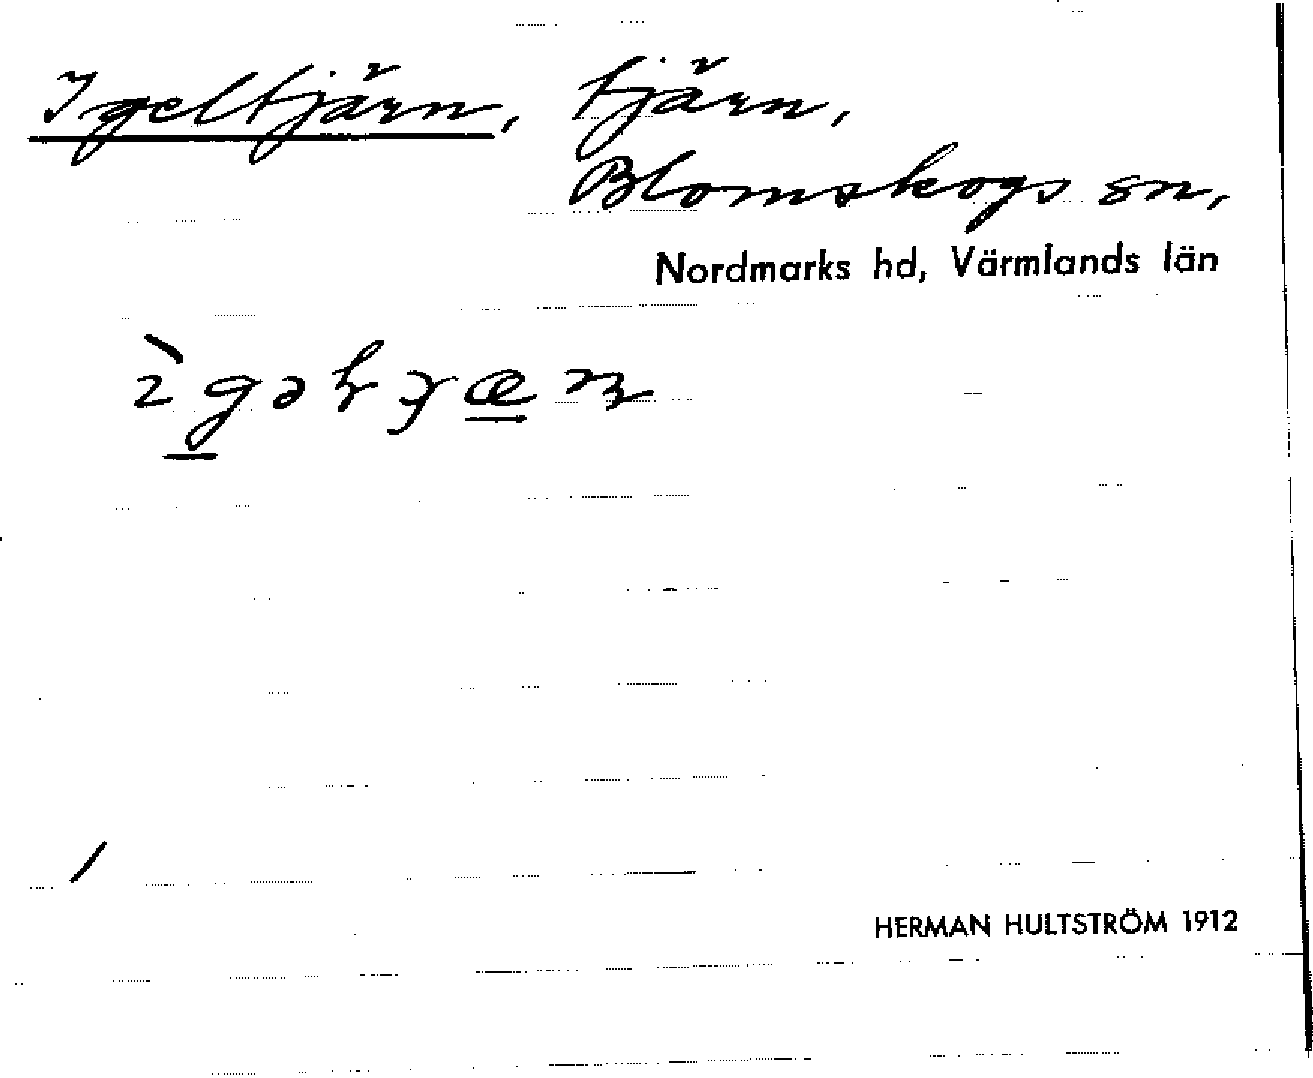 Igeltjärn, tjärn,
Blomskogs sn,
Nordmarks hd, Värmlands län
HERMAN HULTSTRÖM 1912